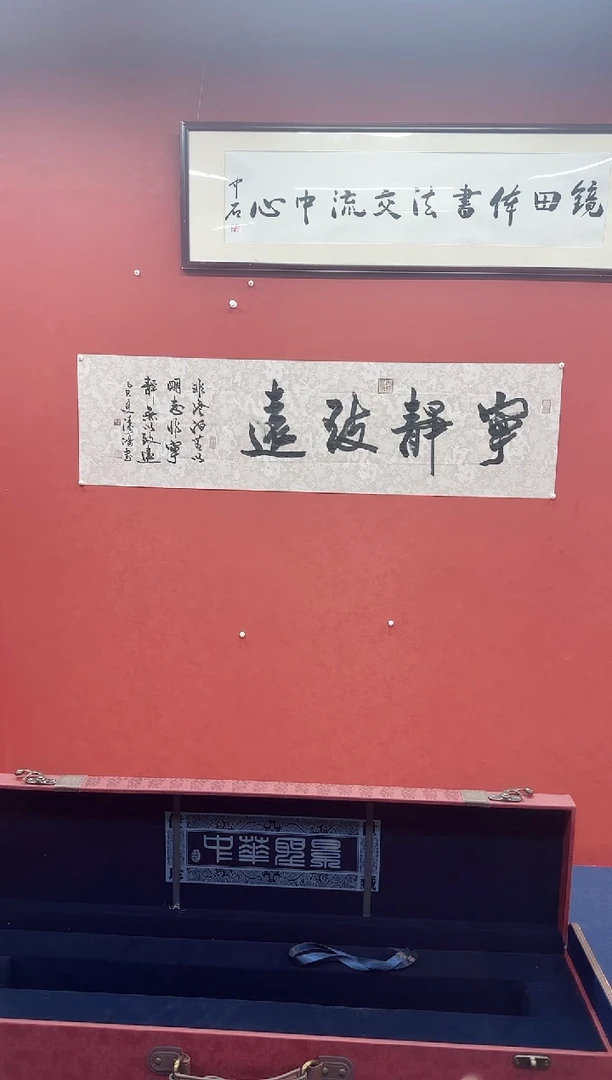 鏡田体書法交流中心
中石
寧靜致遠
非淡泊無以
明志非寧
靜無以致遠
中華聖景